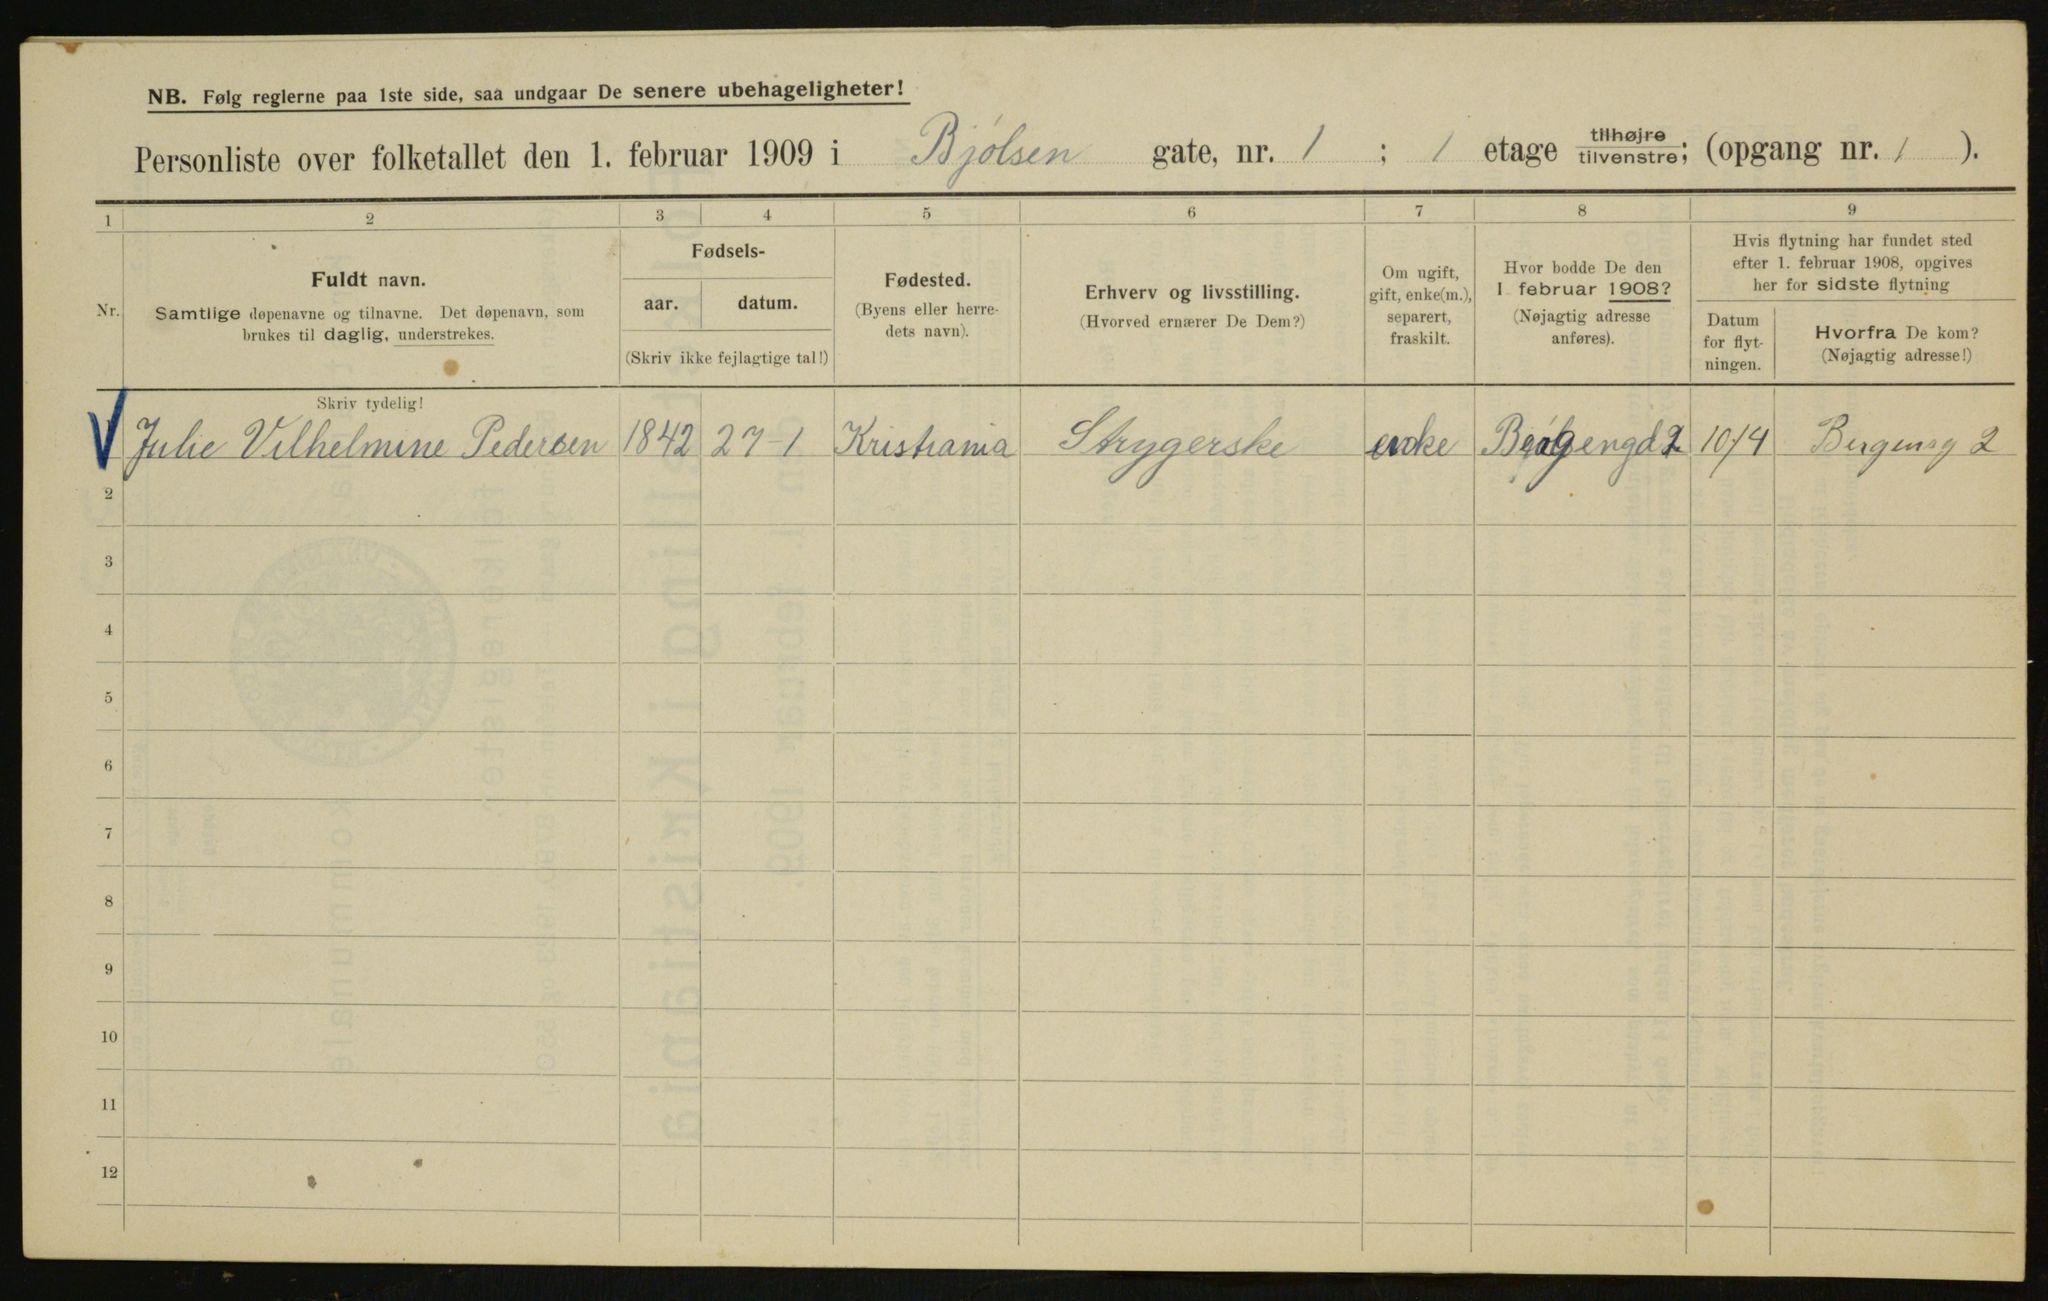 NB. Følg reglerne paa 1ste side, saa undgaar De senere ubehageligheter!
Personliste over folketallet den 1. februar 1909 i Bjølsen gate, nr. 1 ; 1 etage tilhøjre tilvenstre; (opgang nr. 1 ).
1 2 3 4 5 6 7 8 9
Nr.
Fuldt navn.
Samtlige døpenavne og tilnavne. Det døpenavn, som
brukes til daglig, understrekes.
Fødsels-
aar. datum.
(Skriv ikke fejlagtige tal!)
Fødested.
(Byens eller herre-
dets navn).
Erhverv og livsstilling.
(Hvorved ernærer De Dem?)
Om ugift,
gift, enke(m.),
separert,
fraskilt.
Hvor bodde De den
1 februar 1908?
(Nøjagtig adresse
anføres).
Hvis flytning har fundet sted
efter 1. februar 1908, opgives
her for sidste flytning
Datum
for flyt-
ningen.
Hvorfra De kom?
(Nøjagtig adresse!)
Skriv tydelig!
Julie Vilhelmine Pedersen 1842 27-1 Kristiania Strygerske enke 10/4 Bergensg 2
2
3
4
5
6
7
8
9
10
11
12